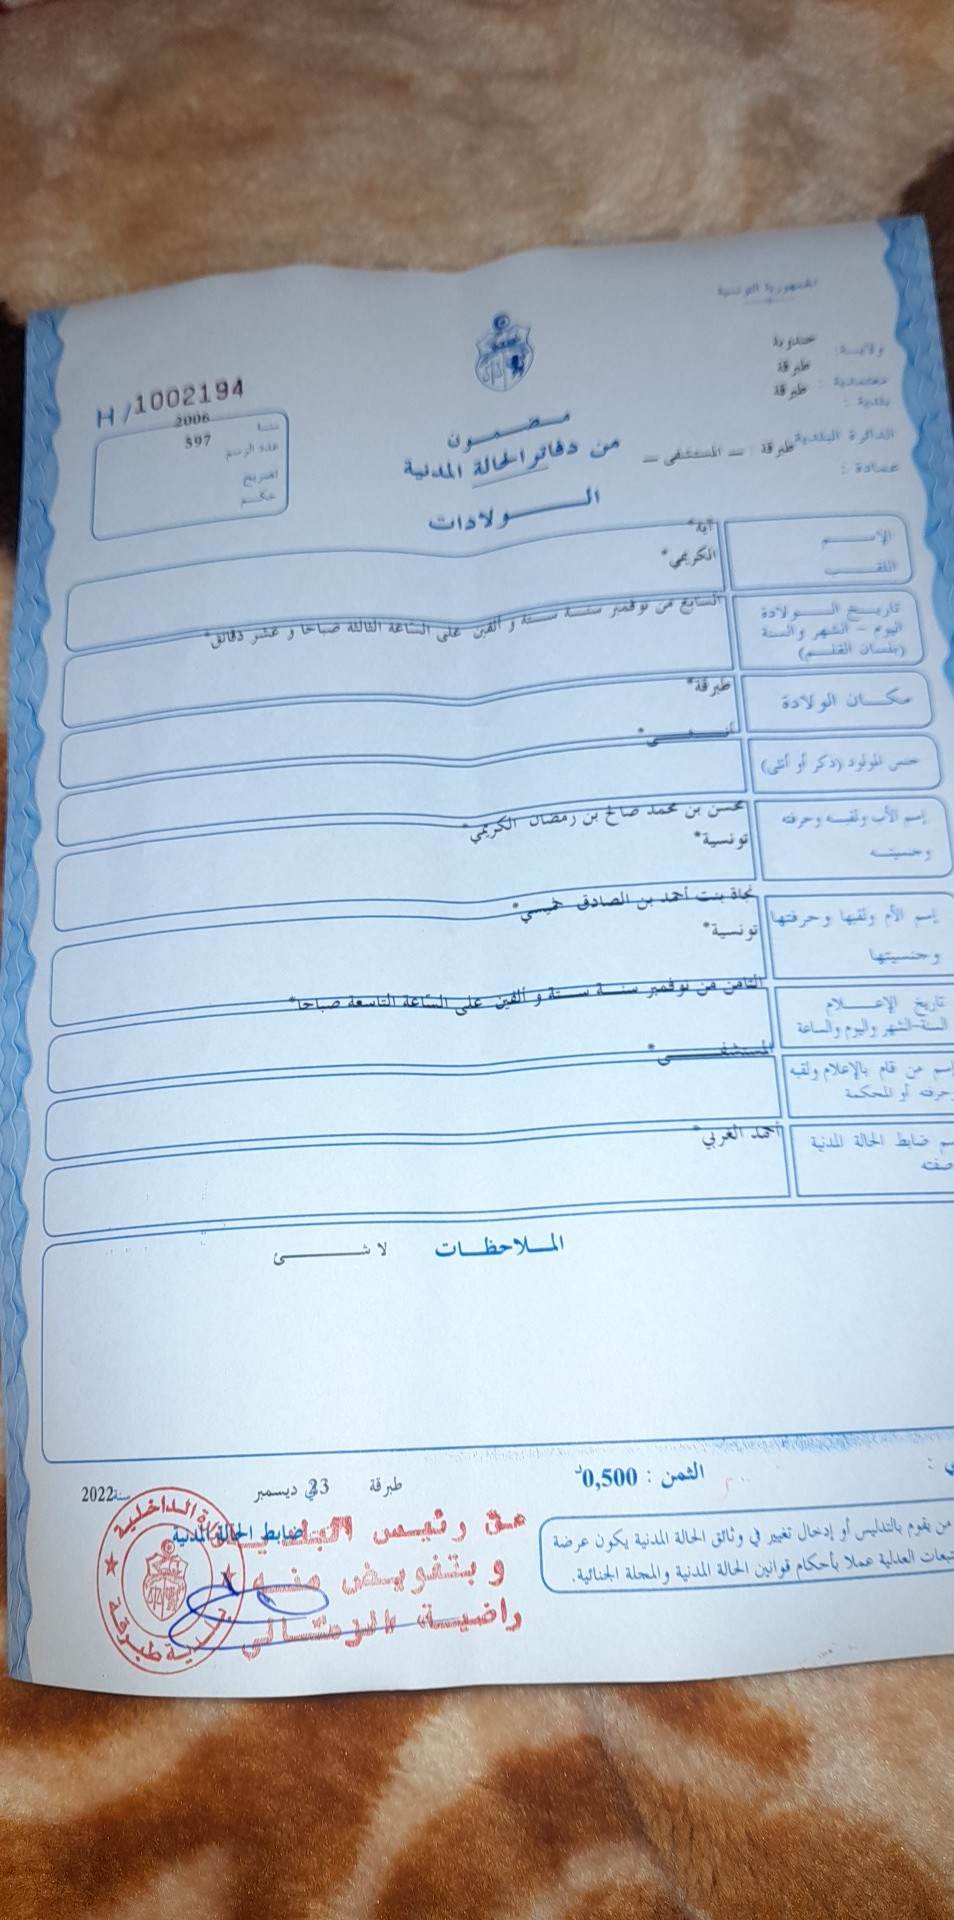 الجمهورية التونسية
ولاية: جندوبة
معتمدية: طبرقة
بلدية: طبرقة
الدائرة البلدية: طبرقة - المستشفى -
عمادة:
H/1002194
سنة 2006
عدد الرسم 597
تصريح
حكم
مضمون
من دفاتر الحالة المدنية
الولادات
الإسم آية*
اللقب الكريمي*
تاريخ الولادة
اليوم - الشهر والسنة
(بلسان القلم)
السابع من نوفمبر سنة ستة و ألفين على الساعة الثالثة صباحا و عشر دقائق*
مكان الولادة طبرقة*
جنس المولود (ذكر أو أنثى) أنثى*
إسم الأب ولقبه وحرفته محسن بن محمد صالح بن رمضان الكريمي*
وجنسيته تونسية*
إسم الأم ولقبها وحرفتها نجاة بنت أحمد بن الصادق خميسي*
وجنسيتها تونسية*
تاريخ الإعلام
السنة-الشهر واليوم والساعة
الثامن من نوفمبر سنة ستة و ألفين على الساعة التاسعة صباحا*
إسم من قام بالإعلام ولقبه المستشفى*
حرفته أو المحكمة
إسم ضابط الحالة المدنية أحمد الغربي*
صفته
الملاحظات لا شئ
الثمن : 0,500د
طبرقة في 23 ديسمبر سنة 2022
ضابط الحالة المدنية
عن رئيس البلدية
و بتفويض منه
راضية
وزارة الداخلية
بلدية طبرقة
من يقوم بالتدليس أو إدخال تغيير في وثائق الحالة المدنية يكون عرضة
للتتبعات العدلية عملا بأحكام قوانين الحالة المدنية والمجلة الجنائية.